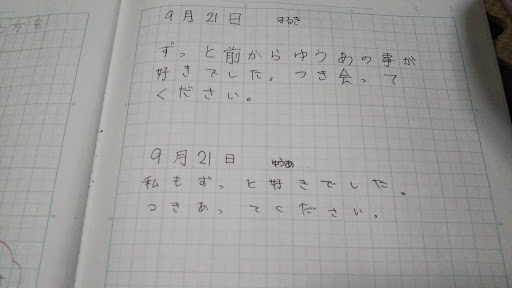 9月21日 はるき
ずっと前からゆうあの事が
好きでした。つき会って
ください。
9月21日 ゆうあ
私もずっと好きでした。
つきあってください。